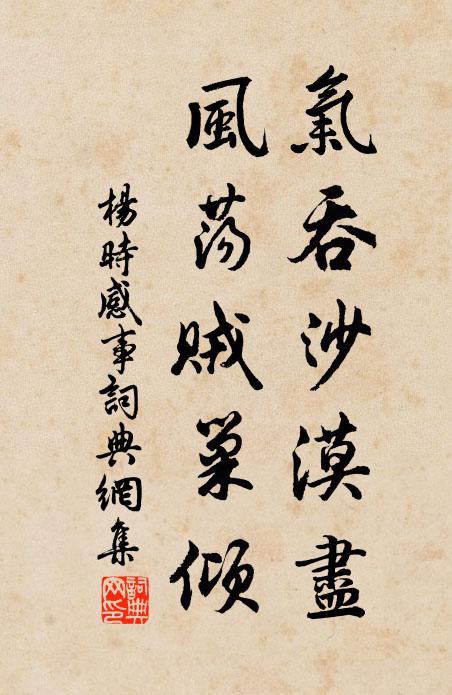 氣吞沙漠盡
風蕩賊巢傾
楊時感事詞典網集
詞典網印